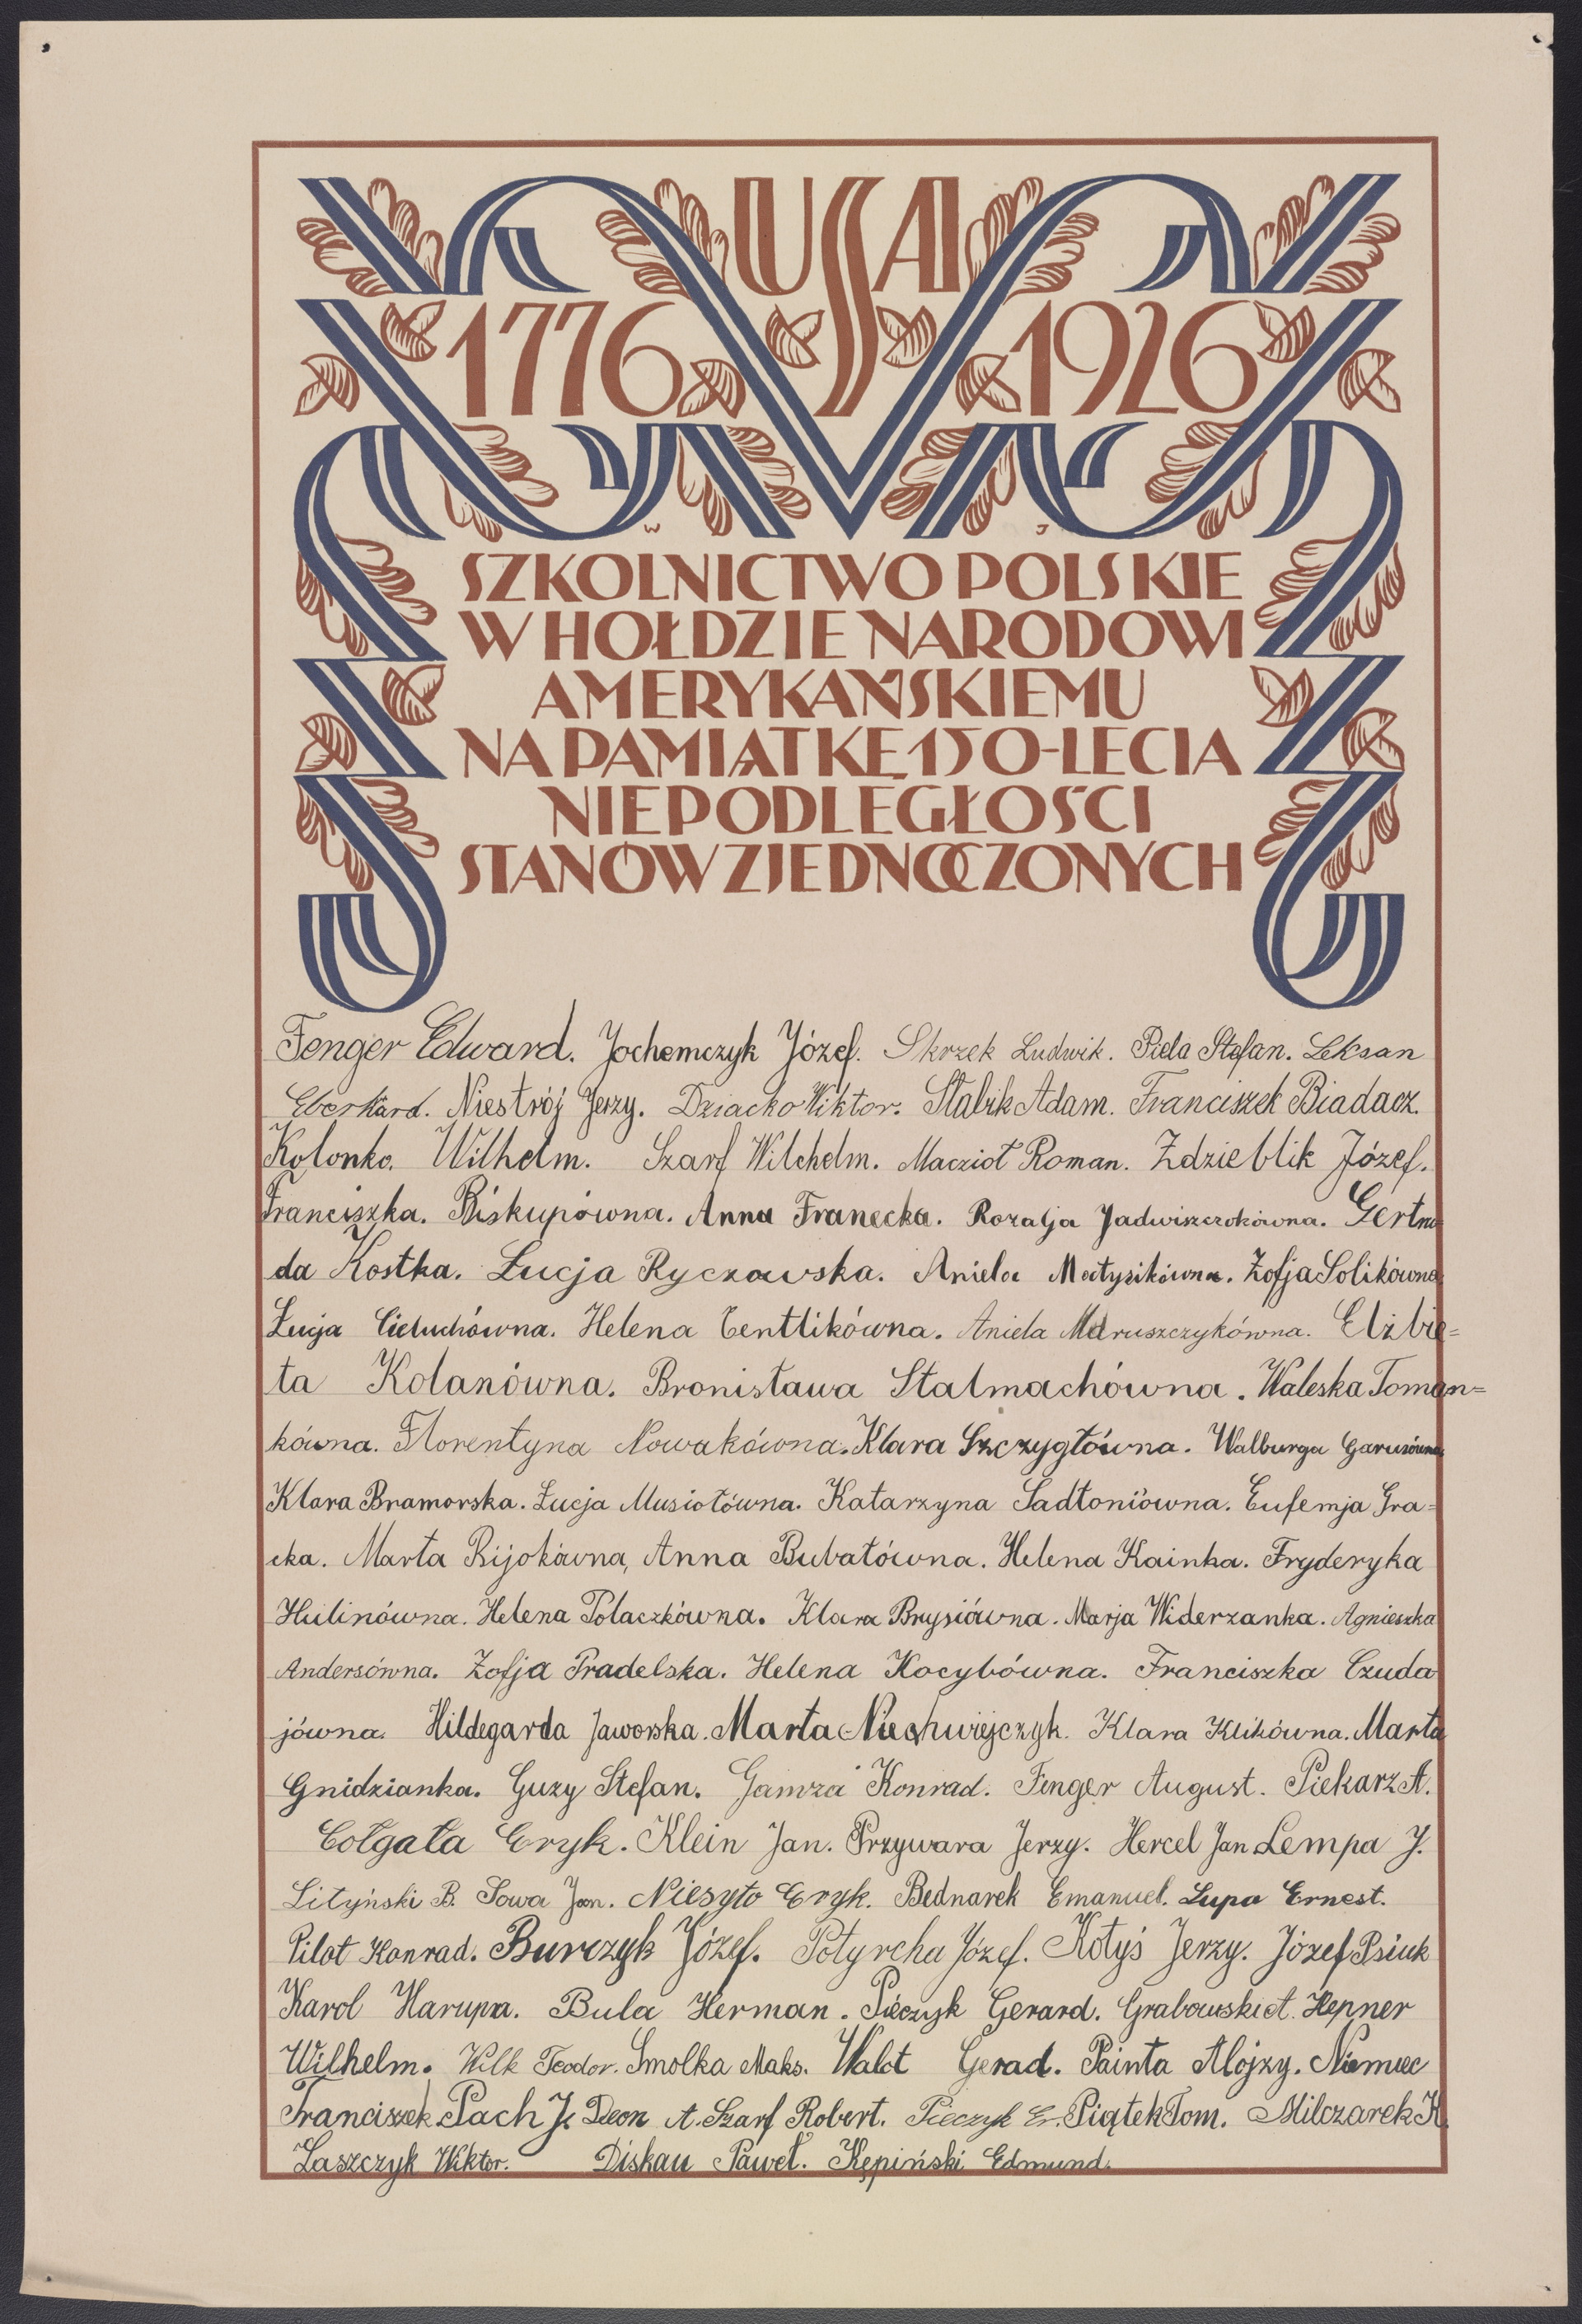 USA
1776 1926
W J
SZKOLNICTWO POLSKIE
W HOŁDZIE NARODOWI
AMERYKAŃSKIEMU
NA PAMIĄTKĘ 150-LECIA
NIEPODLEGŁOŚCI
STANÓW ZJEDNOCZONYCH
Fenger Edward. Jochemczyk Józef. Skrzek Ludwik. Piela Stefan. Leksan
Eberhard. Niestrój Jerzy. Dziacko Wiktor. Stabik Adam. Franciszek Biadacz.
Kolonko. Wilhelm. Szarf Wilchelm. Maczioł Roman. Zdzieblik Józef.
Franciszka. Biskupówna. Anna Franecka. Rozalja Jadwiszczokówna. Gertru
da Kostka. Łucja Ryczowska. Aniela Matysikówna. Zofja Solikówna
Łucja Cieluchówna. Helena Centlikówna. Aniela Maruszczykówna. Elżbie=
ta Kolanówna. Bronisława Stalmachówna. Waleska Toman=
kówna. Florentyna Nowakówna. Klara Szczygłówna. Walburga Garusówna
Klara Bramorska. Łucja Musiołówna. Katarzyna Sadłoniówna. Eufemja Gra=
cka. Marta Bijokówna, Anna Bubałówna. Helena Kainka. Fryderyka
Hulinówna. Helena Polaczkówna. Klara Brysiówna. Marja Widerzanka. Agnieszka
Andersówna. Zofja Pradelska. Helena Kocybówna. Franciszka Czuda
jówna. Hildegarda Jaworska. Marta Niechwiejczyk. Klara Klikówna. Marta
Gnidzianka. Guzy Stefan. Gamza Konrad. Fenger August. Piekarz A.
Cołgała Eryk. Klein Jan. Przywara Jerzy. Hercel Jan Lempa J.
Lityński B. Sowa Jan. Niesyto Eryk. Bednarek Emanuel. Lupa Ernest.
Pilot Konrad. Burczyk Józef. Potyrcha Józef. Kotyś Jerzy. Józef Psiuk
Karol Harupa. Bula Herman. Pieczyk Gerard. Grabowski A. Hepner
Wilhelm. Wilk Teodor. Smolka Maks. Walot Gerad. Painta Alojzy. Niemiec
Franciszek Pach J. Deon A. Szarf Robert. Pieczyk Er. Piątek Tom. Milczarek K.
Laszczyk Wiktor. Diskau Paweł. Kępiński Edmund.